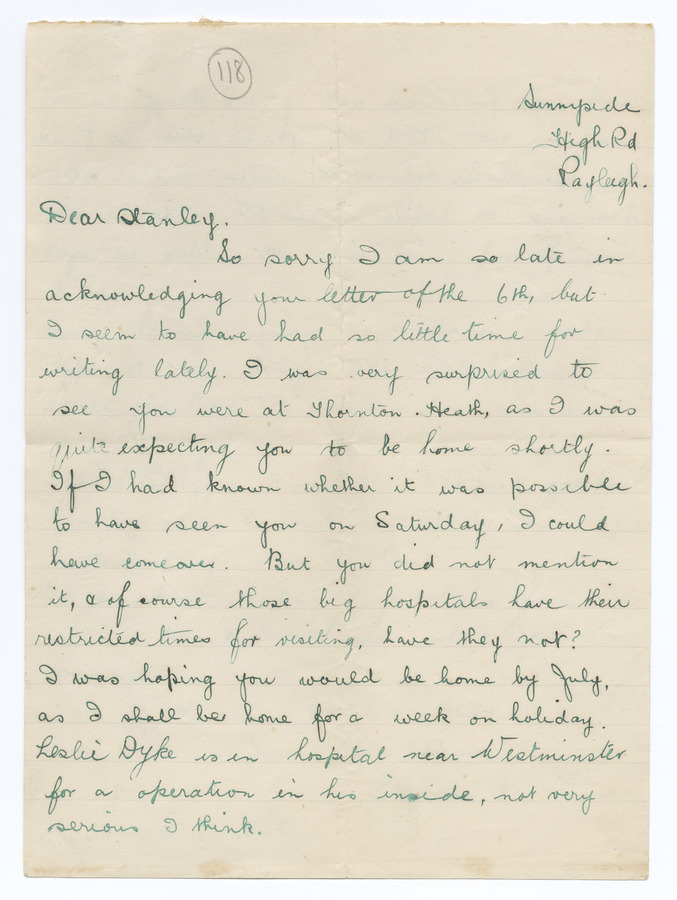 118
Sunnyside
High Rd
Rayleigh.
Dear Stanley.
So sorry I am so late in
acknowledging your letter of the 6th, but
I seem to have had so little time for
writing lately. I was very surprised to
see you were at Thornton. Heath, as I was
quite expecting you to be home shortly.
If I had known whether it was possible
to have seen you on Saturday, I could
have come over. But you did not mention
it, & of course those big hospitals have their
restricted times for visiting, have they not?
I was hoping you would be home by July,
as I shall be home for a week on holiday.
Leslie Dyke is in hospital near Westminster
for a operation in his inside, not very
serious I think.